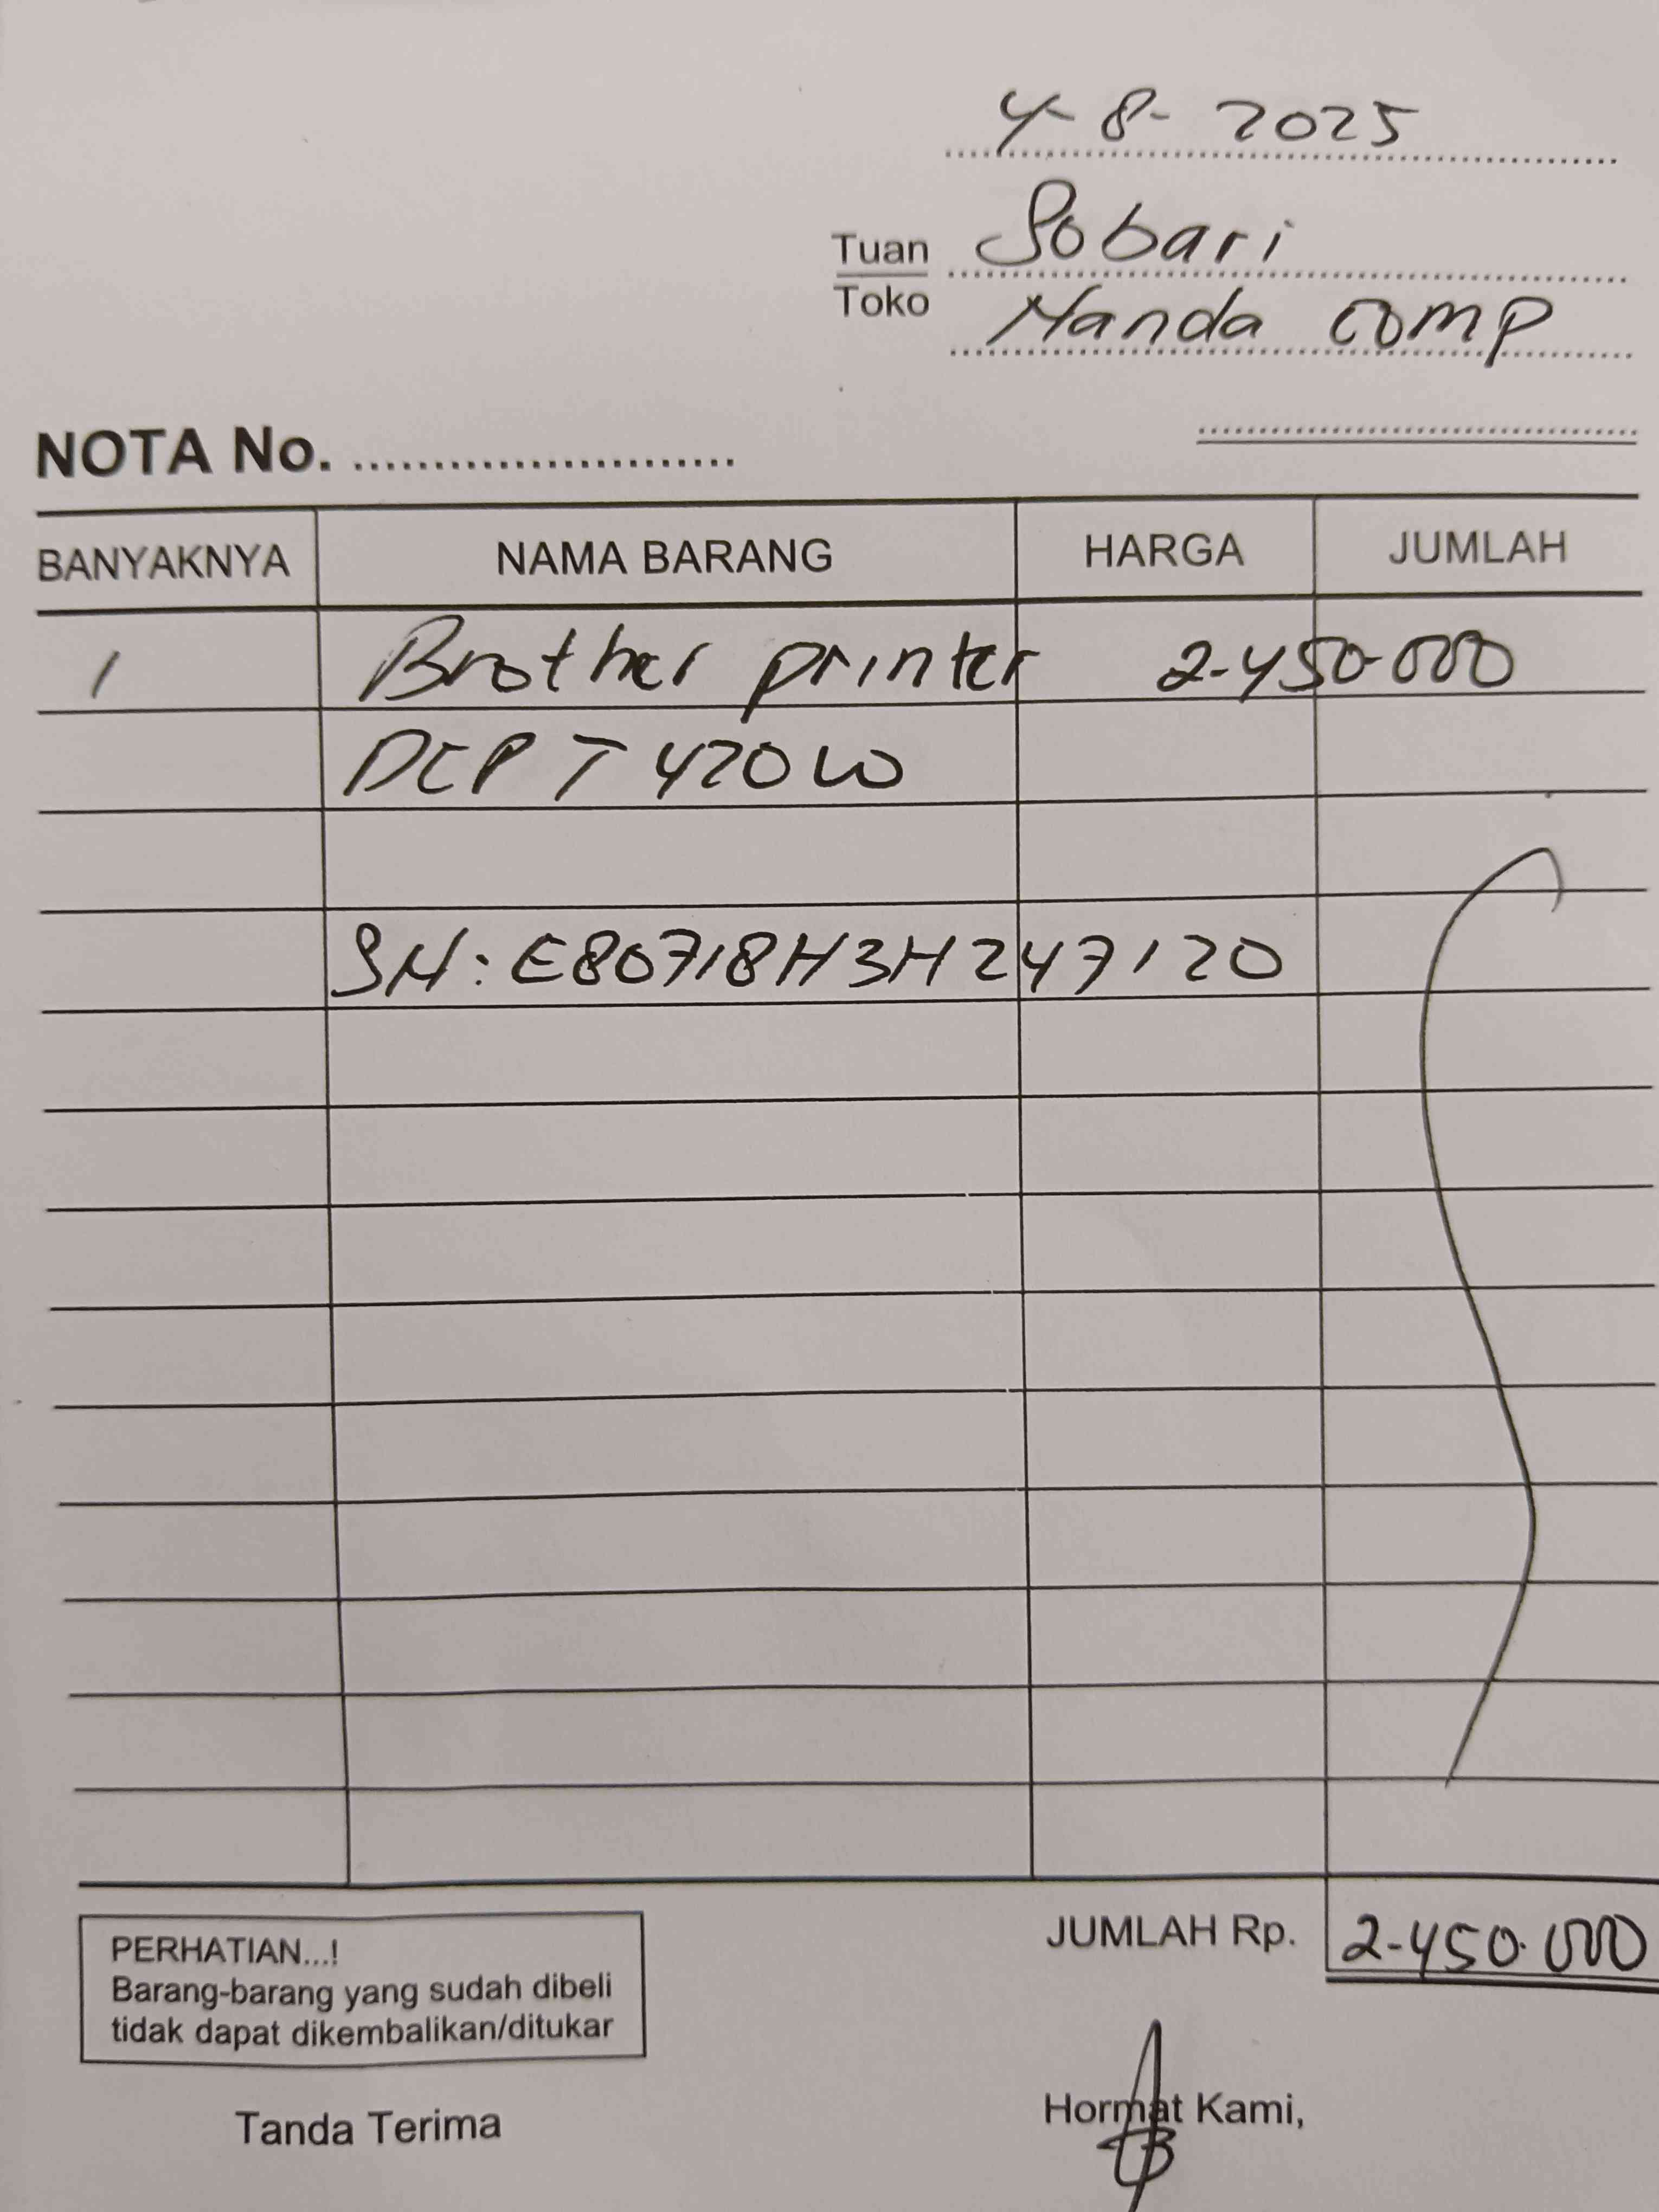 4-8-2025
Tuan Sobari
Toko Nanda comp
NOTA No. ........................
BANYAKNYA NAMA BARANG HARGA JUMLAH
1 Brother printer 2-450-000
DCP T 420 W
SN: E80718H3H247120
JUMLAH Rp. 2-450.000
PERHATIAN...!
Barang-barang yang sudah dibeli
tidak dapat dikembalikan/ditukar
Tanda Terima Hormat Kami,